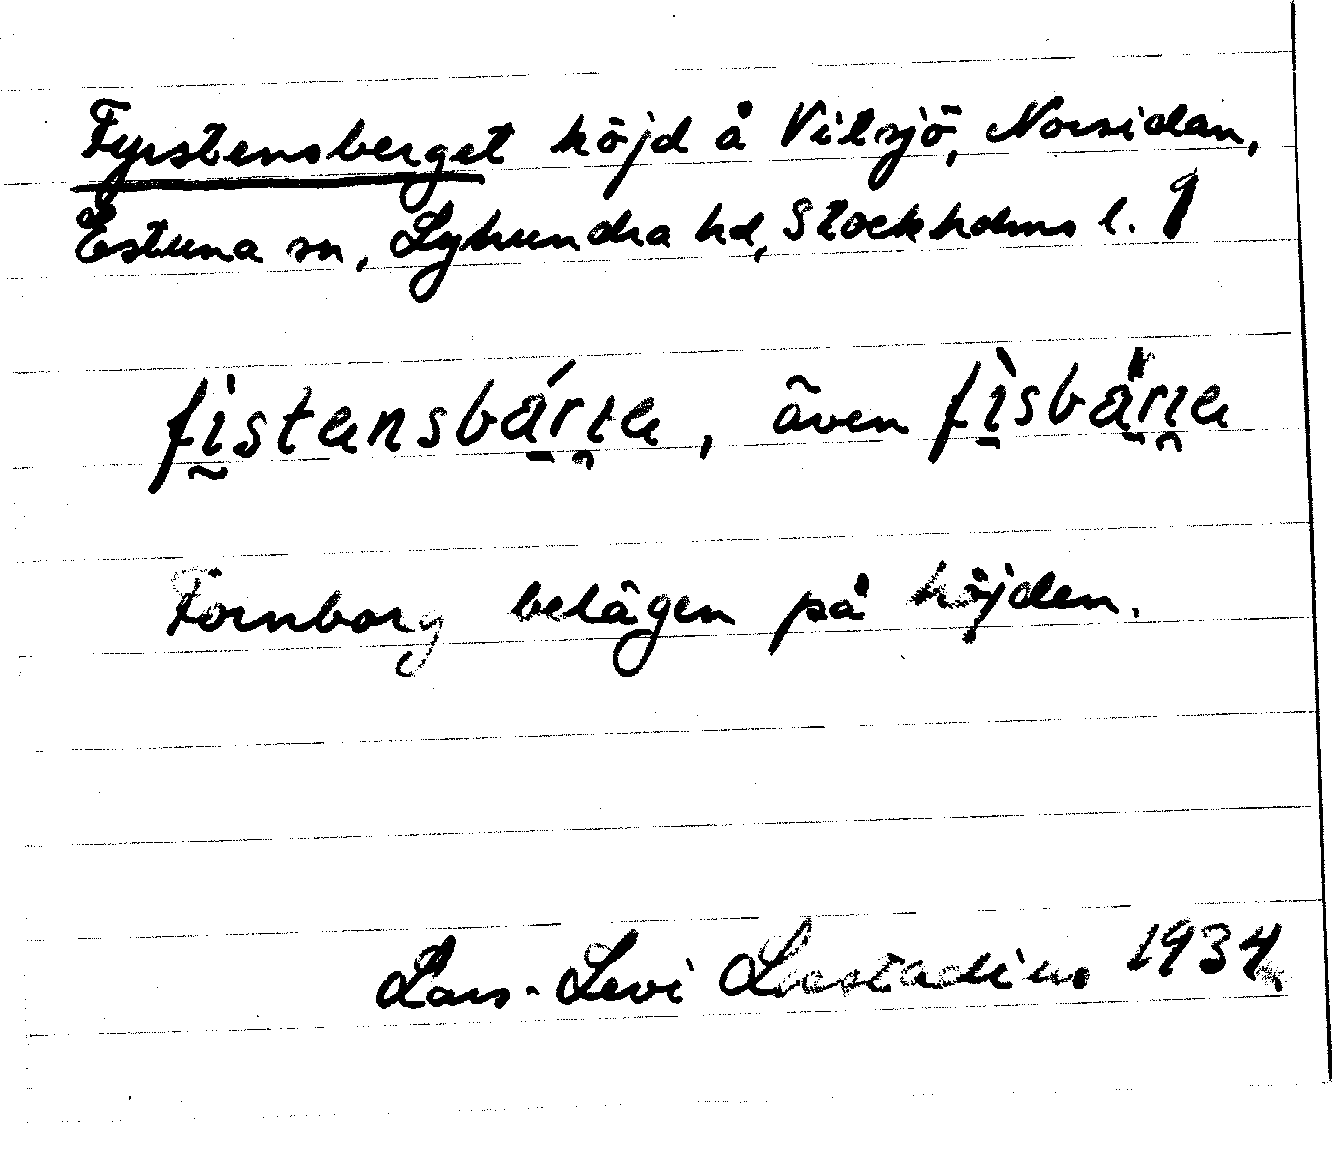 Fyrstensberget höjd å Vitsjö, Norsidan,
Estuna sn, Lyhundra hd, Stockholms l. 1
fistensbárɩa, även fìsbärɩa
Fornborg belägen på höjden.
Lars-Levi Læstadius 1934